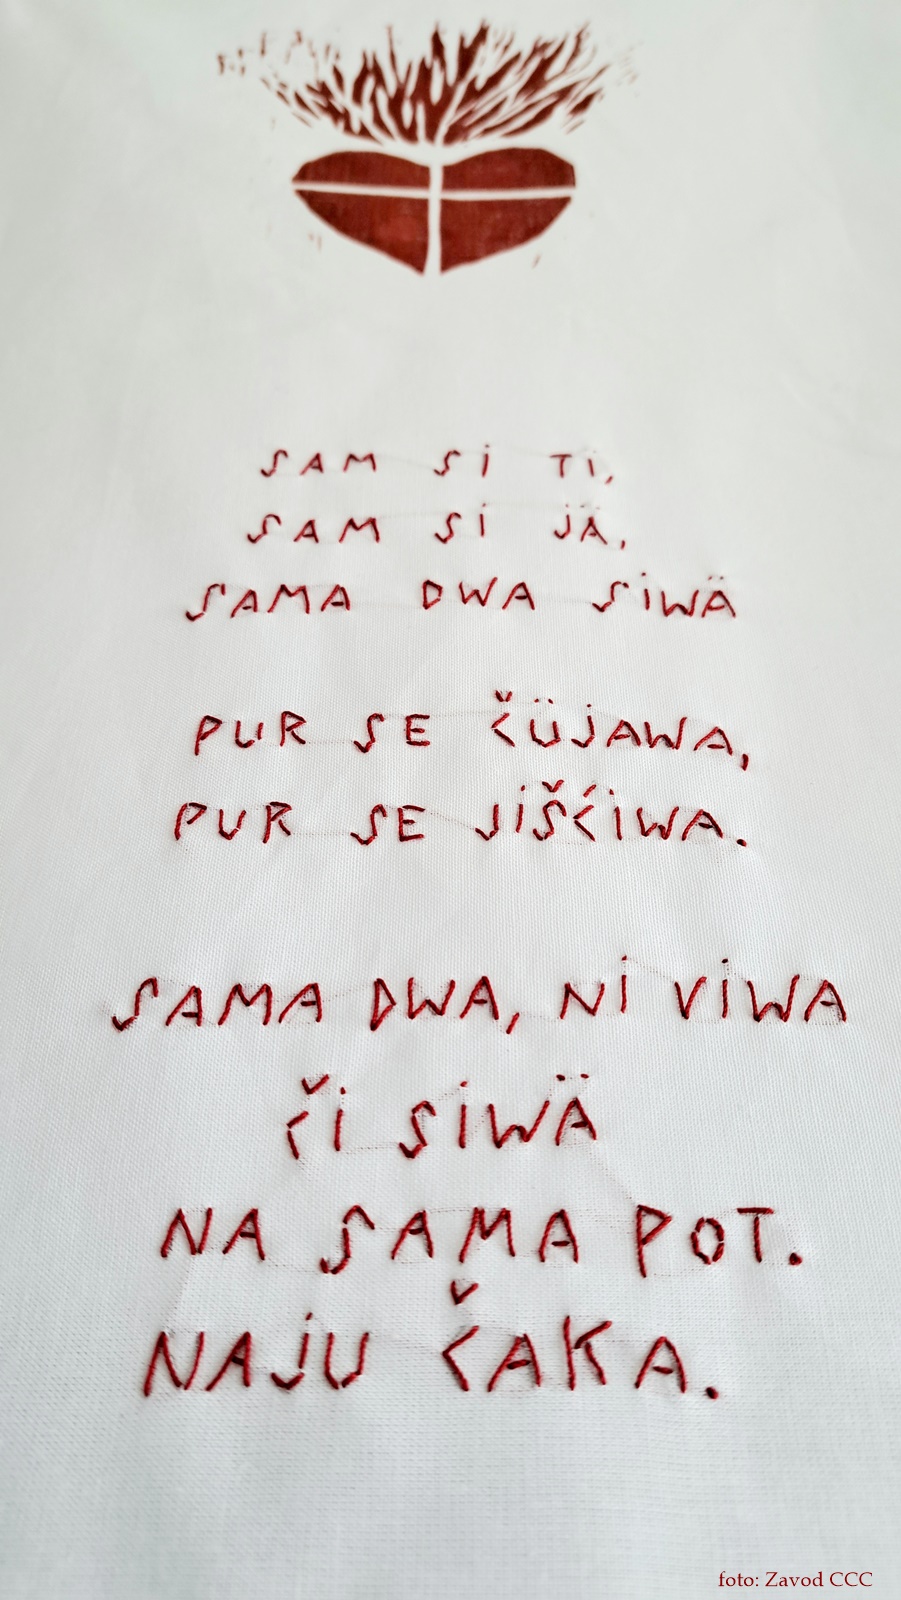 SAM SI TI,
SAM SI JÄ,
SAMA DWA SIWÄ
PUR SE ČÜJAWA,
PUR SE JIŠĆIWA.
SAMA DWA, NI VIWA
ČI SIWÄ
NA SAMA POT.
NAJU ČAKA.
foto: Zavod CCC